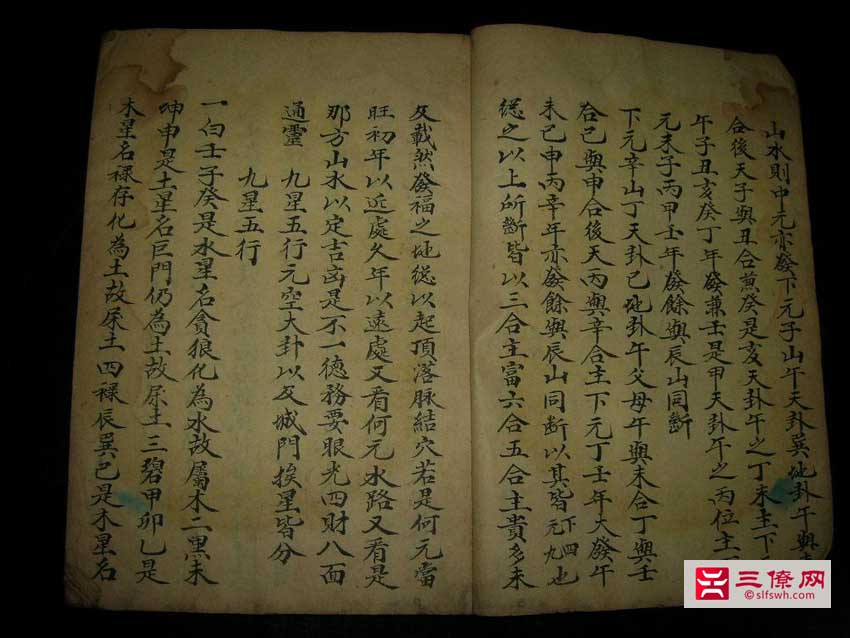 山水則中元亦發下元子山午天卦巽地卦午與
合後天子與丑合煎癸是亥天卦午之丁未主下
午子丑亥癸丁年發兼壬是甲天卦午之丙位主
元未子丙甲壬年發餘與辰山同斷
下元辛山丁天卦已地卦午父母午與未合丁與壬
合已與申合後天丙與辛合主下元丁壬年大發午
未已申丙辛年亦發餘與辰山同斷以其皆元九下四也
總之以上所斷皆以三合主富六合五合主貴多未
及載然發福之地總以起頂落脉結穴若是何元當
旺初年以近處久年以遠處又看何元水路又看是
那方山水以定吉凶是不一德務要眼光四財八面
通靈 九星五行元空大卦以及城門挨星皆分
九星五行
一白壬子癸是水星名貪狼化為水故屬木二黑未
坤申是土星名巨門仍為土故屎土三碧甲卯乙是
木星名祿存化為土故屎土四祿辰巽已是木星名
三僚网
slfswh.com